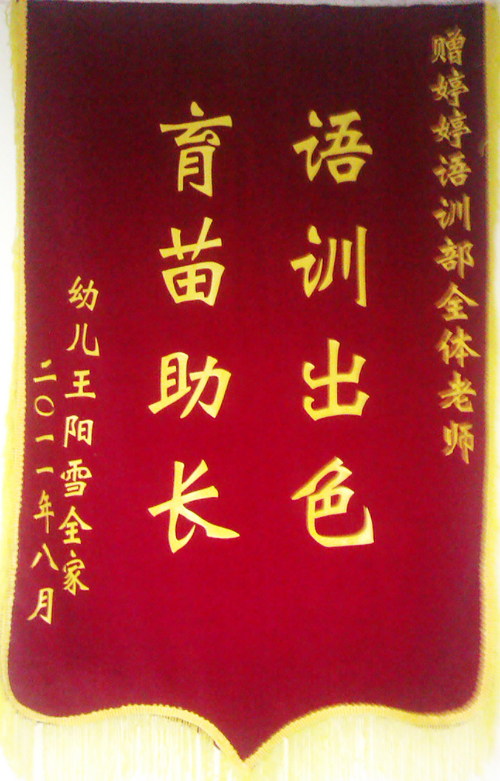 赠婷婷语训部全体老师
语训出色
育苗助长
幼儿王阳雪全家
二〇一一年八月